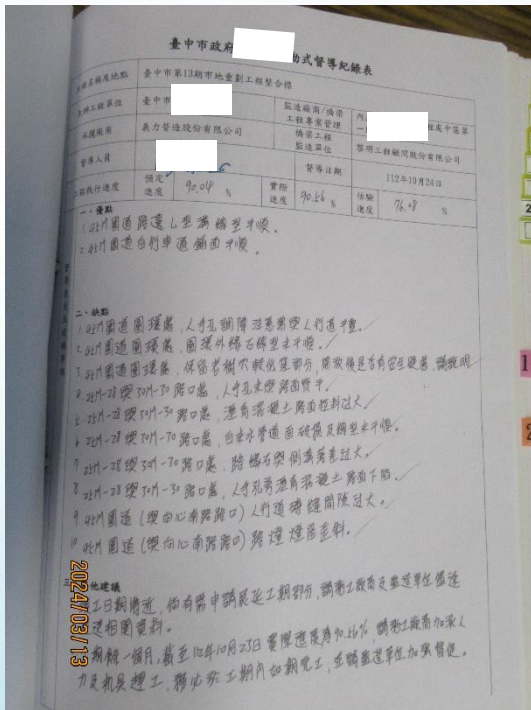 臺中市政府 動式督導紀錄表
工程名稱及地點 臺中市第13期市地重劃工程整合標
主辦工程單位 臺中市 監造廠商/橋梁工程專案管理 內 程處中區第一
承攬廠商 義力營造股份有限公司 橋梁工程監造單位 黎明工程顧問股份有限公司
督導人員 督導日期 112年10月24日
工程執行進度 預定進度 90.04 % 實際進度 90.56 % 估驗進度 76.08 %
一、優點
1. 45M園道路邊L型溝線型平順。
2. 45M園道自行車道鋪面平順。
二、缺點
1. 45M園道圍環處，人手孔調降注意需與人行道平整。
2. 45M園道圍環處，圍環外緣石線型未平順。
3. 45M園道圍環處，保留老樹穴較低窪部分，開放後是否有安全疑慮，請說明
4. 25M-28與30M-30路口處，人手孔未與路面齊平。
5. 25M-28與30M-30路口處，瀝青混凝土路面粒料過大。
6. 25M-28與30M-30路口處，自來水管道面破損及線型未平順。
7. 25M-28與30M-30路口處，路緣石與側溝落差過大。
8. 25M-28與30M-30路口處，人手孔旁瀝青混凝土路面下陷。
9. 45M園道(與向心南路路口)人行道磚縫間隙過大。
10. 45M園道(與向心南路路口)路燈燈座歪斜。
三、其他建議
工日期將近，倘有需申請展延工期部分，請施工廠商及監造單位儘速
送相關資料。
期餘一個月，截至112年10月23日實際進度為90.56%，請施工廠商加派人
力及機具趕工，務必於工期內如期完工，並請監造單位加強督促。
2024/03/13